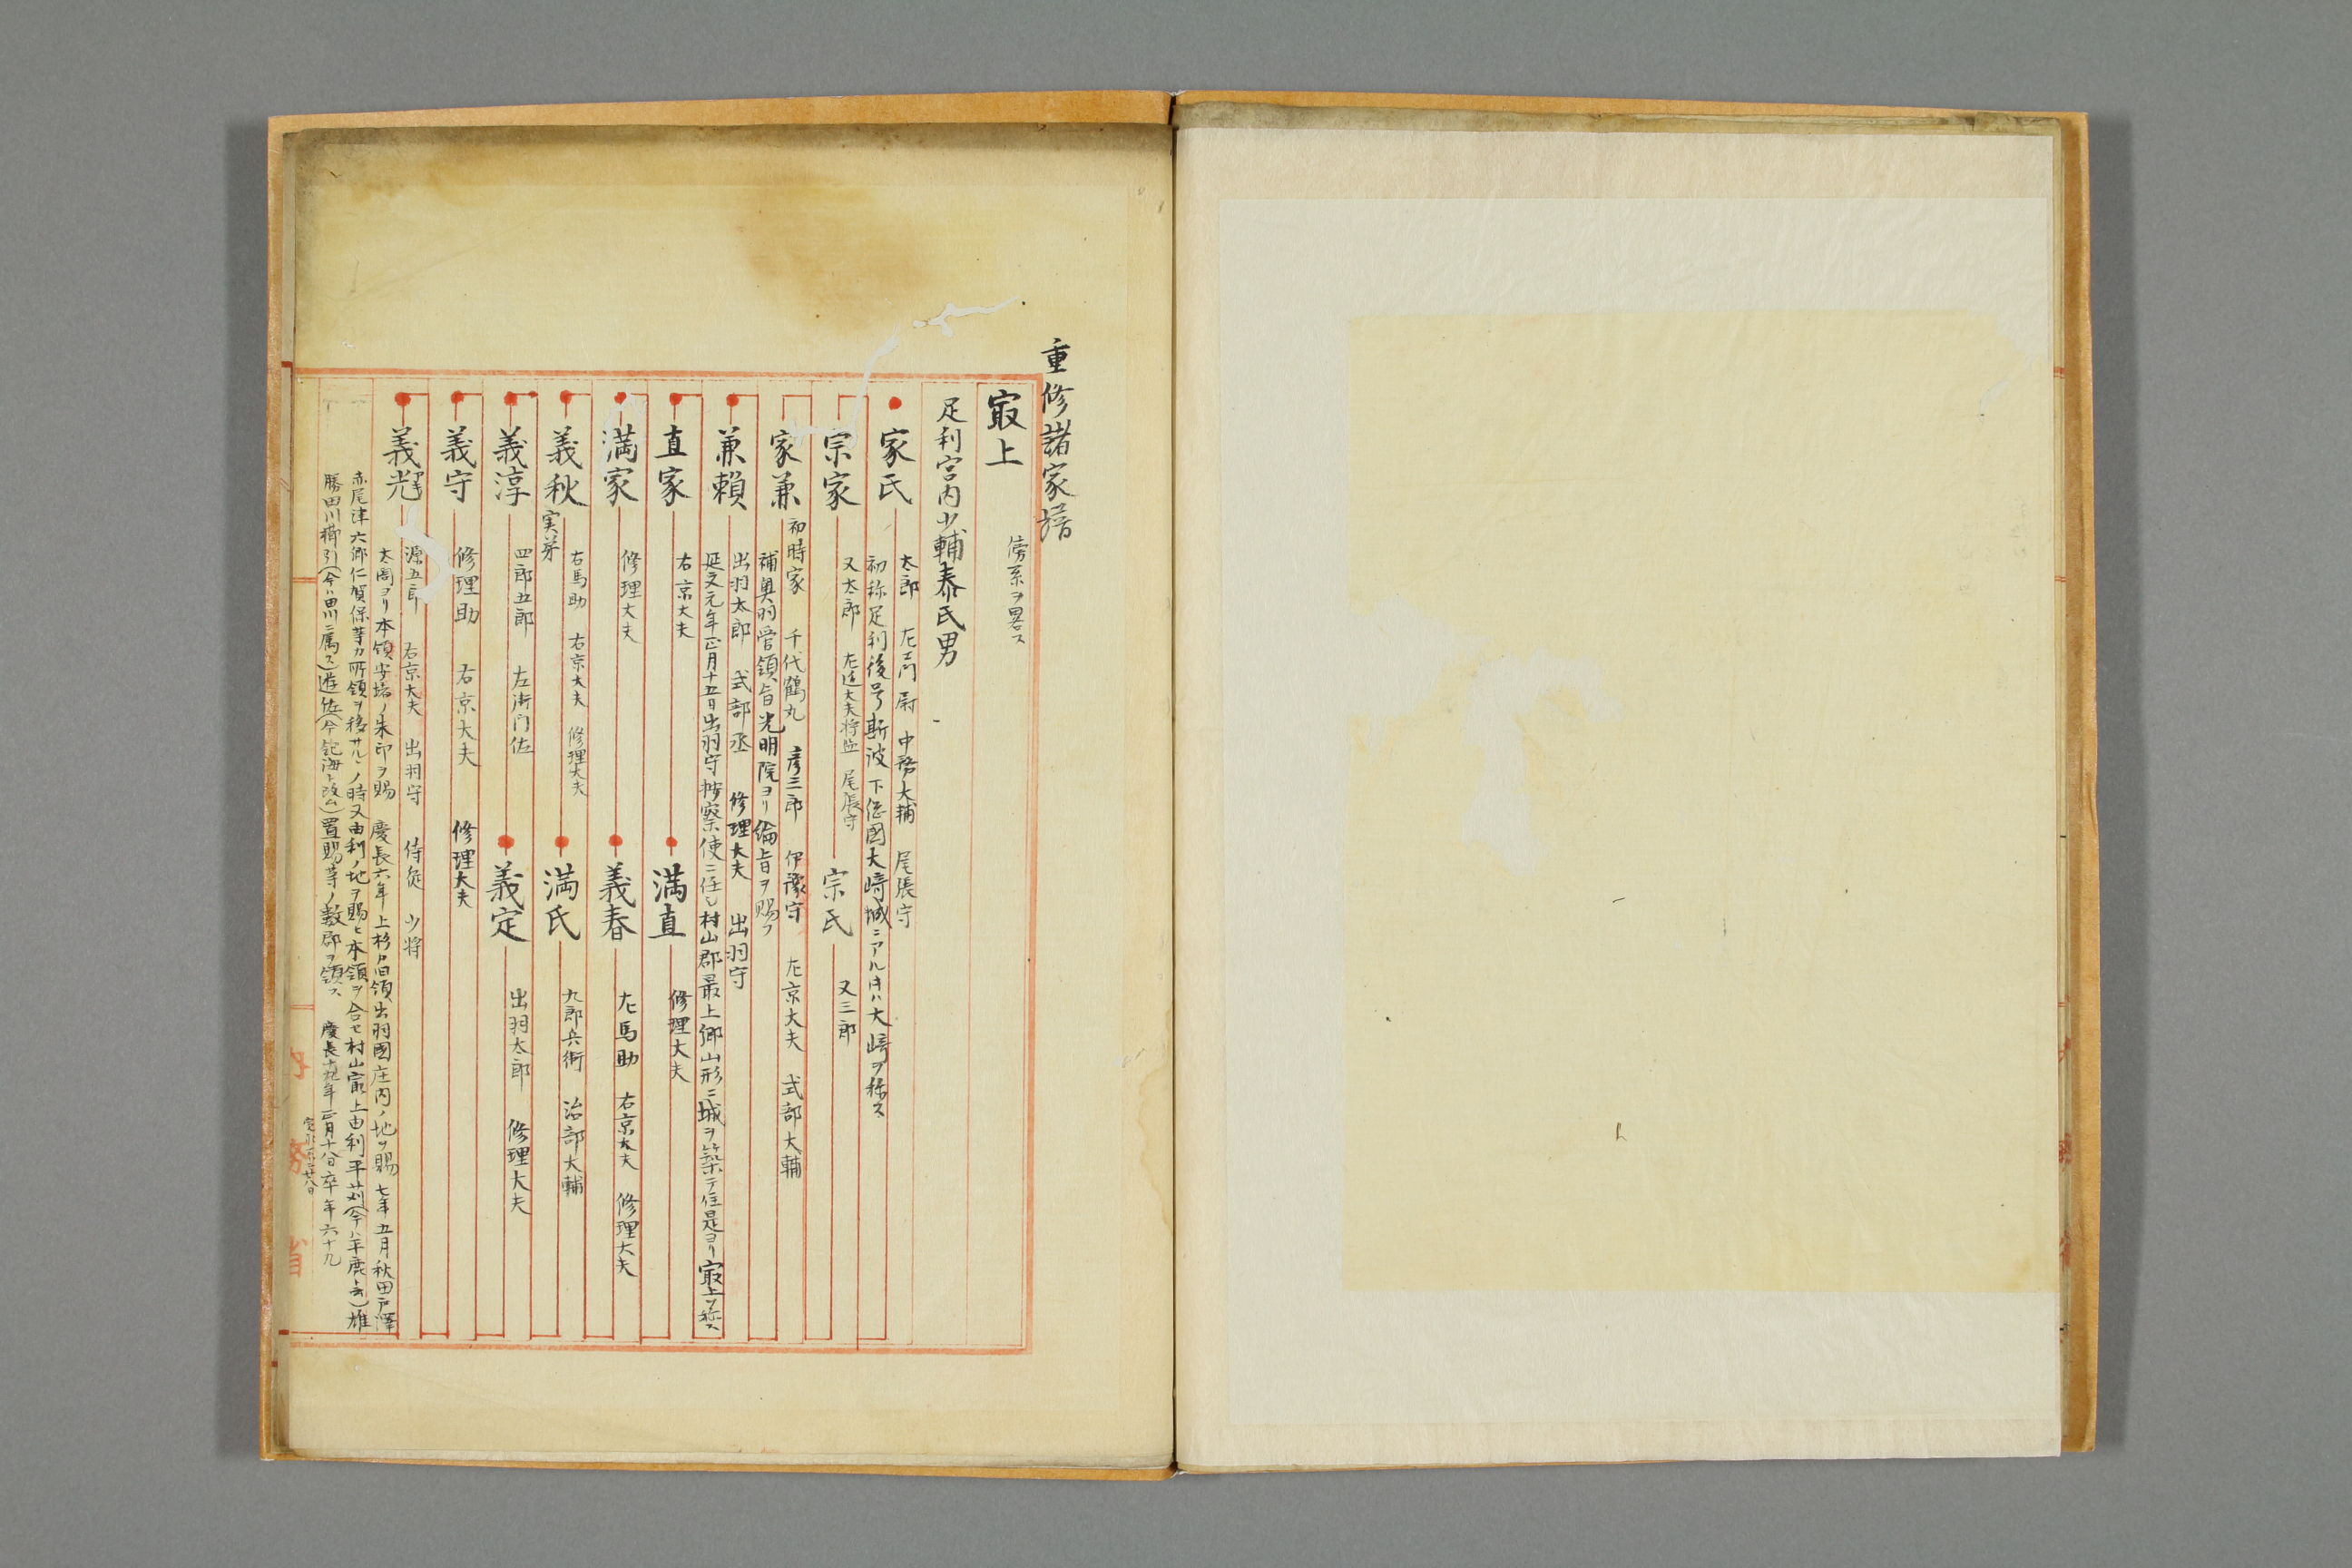 重修諸家譜
㝡上
傍系ヲ畧ス
足利宮内少輔泰氏男
家氏
太郎 左エ門尉 中務大輔 尾張守
初称足利後号斯波 下総國大﨑城ニアル片ハ大﨑ヲ称ス
宗家
又太郎 左近大夫将監 尾張守
宗氏
又三郎
家兼
初時家 千代鶴丸 彦三郎 伊豫守 左京大夫 式部大輔
補奥羽管領旨光明院ヨリ綸旨ヲ賜フ
兼頼
出羽太郎 式部丞 修理大夫 出羽守
延文元年正月十五日出羽守按察使ニ任シ村山郡最上郷山形ニ城ヲ築テ住是ヨリ㝡上ヲ称ス
直家
右京大夫
満直
修理大夫
満家
修理大夫
義春
左馬助 右京大夫 修理大夫
義秋
実弟
右馬助 右京大夫 修理大夫
満氏
九郎兵衛 治部大輔
義淳
四郎五郎 左衛门佐
義定
出羽太郎 修理大夫
義守
修理助 右京大夫 修理大夫
義光
源五郎 右京大夫 出羽守 侍従 少将
太閤ヨリ本領安堵ノ朱印ヲ賜 慶長六年上杉ノ旧領出羽國庄内ノ地ヲ賜 七年五月秋田戸澤
赤尾津六郷仁賀保等カ所領ヲ移サルヽノ時又由利ノ地ヲ賜ヒ本領ヲ合セ村山㝡上由利平苅(今ハ平鹿ト云)雄
勝田川櫛引(今ハ田川ニ属ス)遊佐(今飽海ト改ム)置賜等ノ数郡ヲ領ス 慶長十九年正月十八日卒年六十九